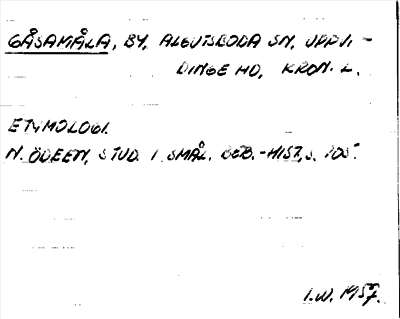 GÅSAMÅLA, BY, ALGUTSBODA SN, UPPVI-
DINGE HD, KRON. L.
ETYMOLOGI.
N. ÖDEEN, STUD. I SMÅL. BEB.-HIST, S. 205.
I.W. 1957.